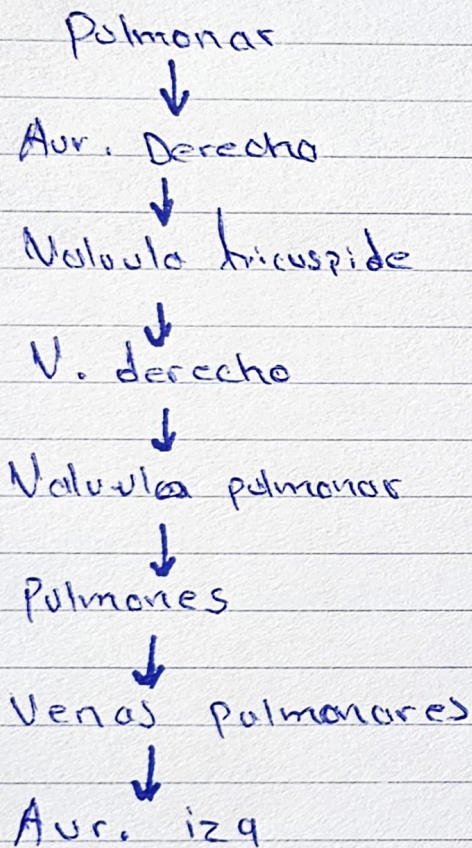 Pulmonar
↓
Aur. Derecha
↓
Valvula tricuspide
↓
V. derecho
↓
Valvula pulmonar
↓
Pulmones
↓
Venas pulmonares
↓
Aur. izq